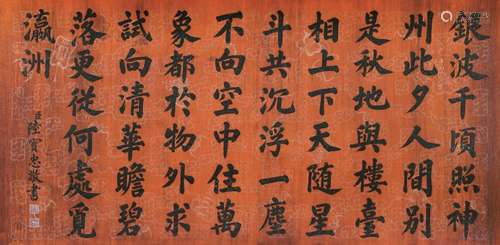 銀波千頃照神
州此夕人間別
是秋地與樓臺
相上下天隨星
斗共沉浮一塵
不向空中住萬
象都於物外求
試向清華瞻碧
落更從何處覓
瀛洲
臣陸寶忠敬書